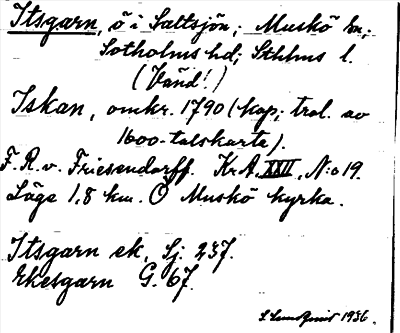 Itsgarn, ö i Saltsjön; Muskö sn;
Sotholms hd; Sthlms l.
(Vänd!)
Iskan, omkr. 1790 (kop; trol. av
1600-talskarta).
F. R. v. Friesendorff. Kr.A. XXII, N:o 19.
Läge 1,8 km. O Muskö kyrka.
Itsgarn ek, Sj. 237.
Ekesgarn G. 67.
S Lundqvist 1936.